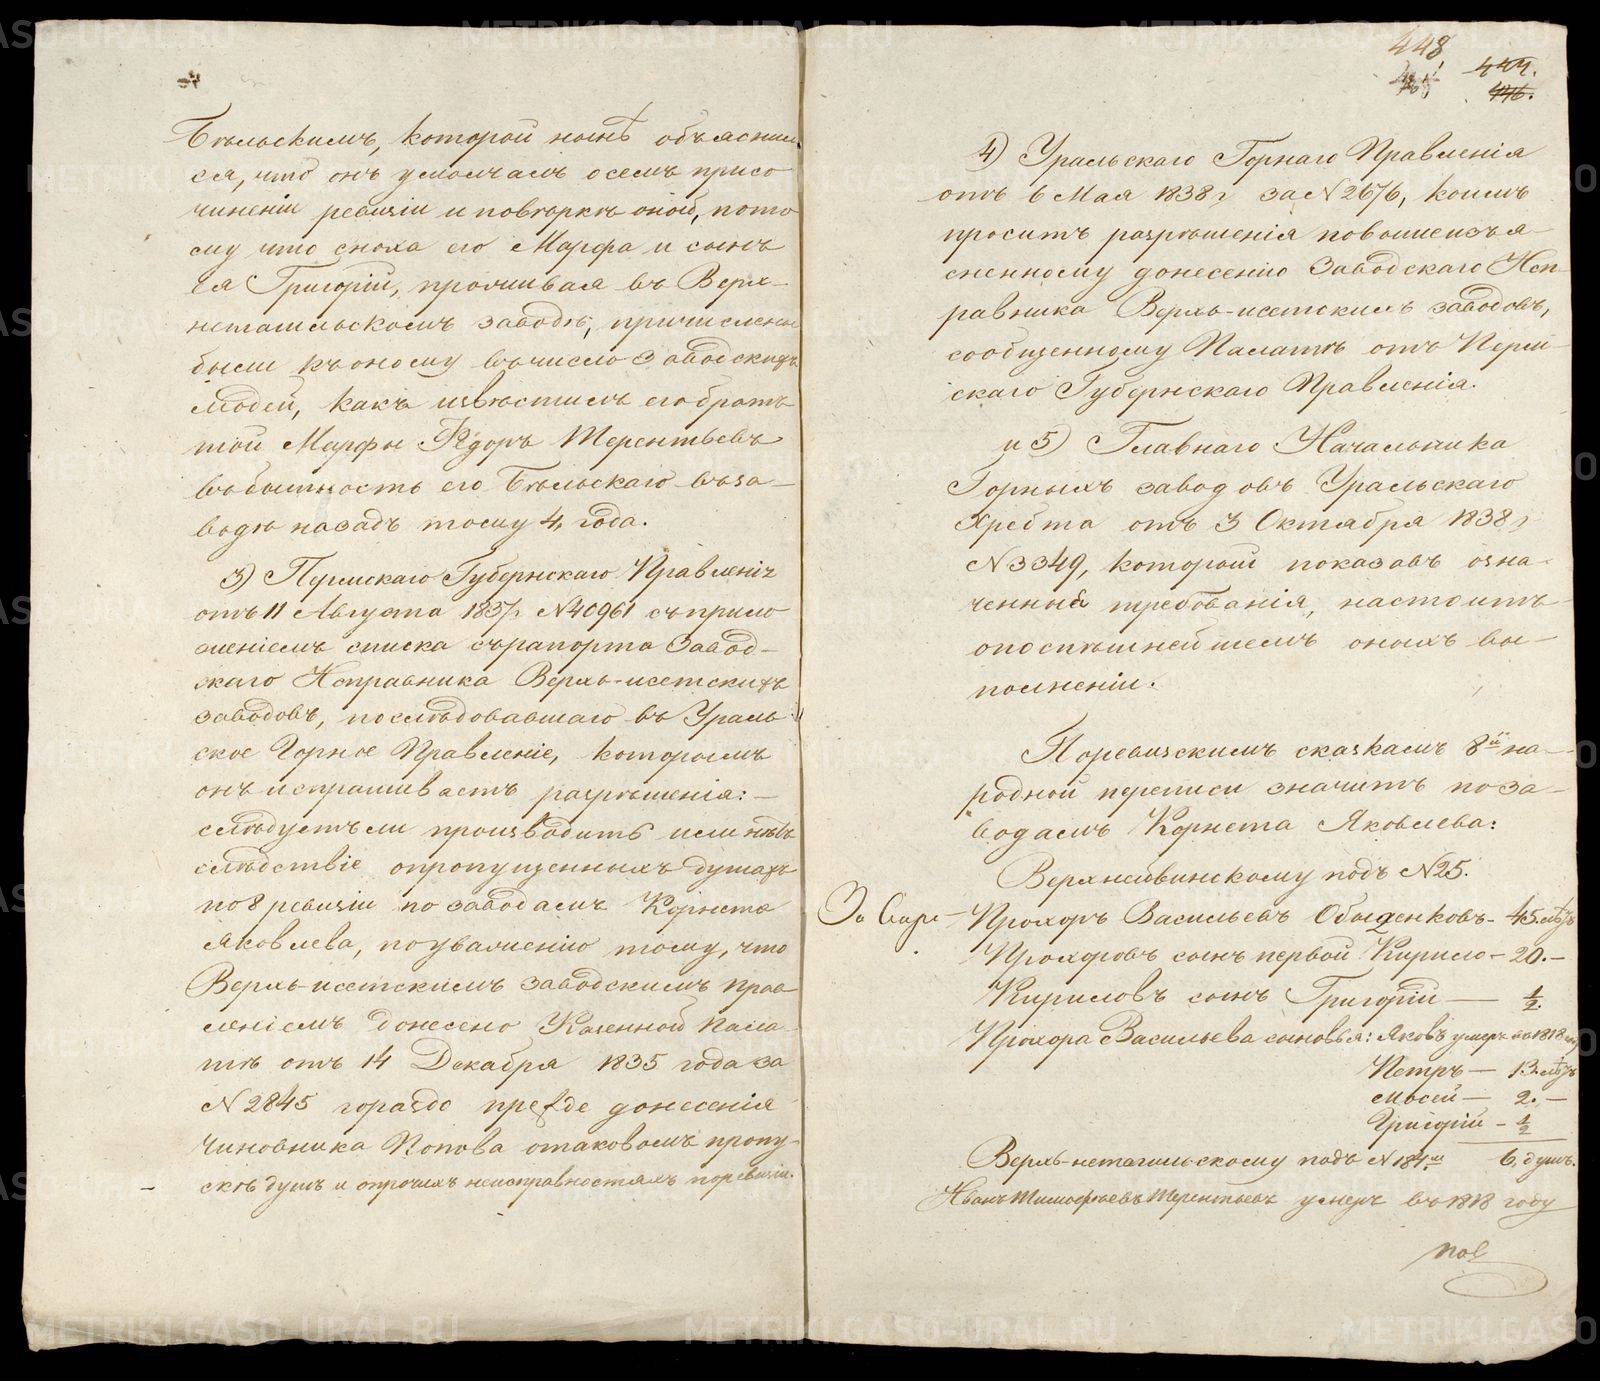 Бѣльскимъ, которой нынѣ объяснил
ся, что онъ умолчалъ о семъ при со
чиненіи ревизіи и повѣркѣ оной, пото
му что сноха его Марфа и сынъ
ея Григорій, проживая въ Верх-
нетагильскомъ заводѣ, причислены
были къ оному въ число заводскихъ
людей, какъ извѣстилъ его братъ
той Марфы Ѳедоръ Терентьевъ
въ бытность его Бѣльскаго въ за-
водѣ назадъ тому 4 года.
3) Пермскаго Губернскаго Правленія
отъ 11 Августа 1837г N40961 съ прило
женіемъ списка съ рапорта Завод-
скаго Исправника Верхъ-исетскихъ
заводовъ, послѣдовавшаго въ Ураль
ское Горное Правленіе, которымъ
онъ испрашиваетъ разрѣшенія:-
слѣдуетъ ли производить или нѣтъ
слѣдствіе о пропущенныхъ душахъ
по 8 ревизіи по заводамъ Корнета
Яковлева, по уваженію тому, что
Верхъ-исетскимъ заводскимъ прав
леніемъ донесено Казенной Пала-
тѣ отъ 14 Декабря 1835 года за
N2845 гораздо прежде донесенія
чиновника Попова о таковомъ пропу-
скѣ душъ и о прочихъ неисправностяхъ по ревизіи.
448
444.
446.
4) Уральскаго Горнаго Правленія
отъ 6 Мая 1838г за N2676, коимъ
проситъ разрѣшенія по вышеизъя-
сненному донесенію Заводскаго Исп-
равника Верхъ-исетскихъ заводовъ,
сообщенному Палатѣ отъ Перм-
скаго Губернскаго Правленія.
и 5) Главнаго Начальника
Горныхъ заводовъ Уральскаго
Хребта отъ 3 Октября 1838г
N3349, которой показавъ озна-
ченныя требованія, настоитъ
о поспѣшнейшемъ оныхъ вы-
полненіи.
По ревизскимъ сказкамъ 8й на-
родной переписи значитъ по за-
водамъ Корнета Яковлева:
Верхнейвинскому подъ N25.
Прохоръ Васильевъ Обыденковъ- 45. лѣтъ
Прохоровъ сынъ первой Кирило- 20.-
Кириловъ сынъ Григорій — 1/2
Прохора Васильева сыновья: Яковъ умеръ въ 1818
Петръ — 13. лѣтъ
Мосей — 2. -
Григорій - 1/2
Верхъ-нетагильскому подъ N184м 6. душъ.
Иванъ Тимофеевъ Терентьевъ умеръ въ 1818 году